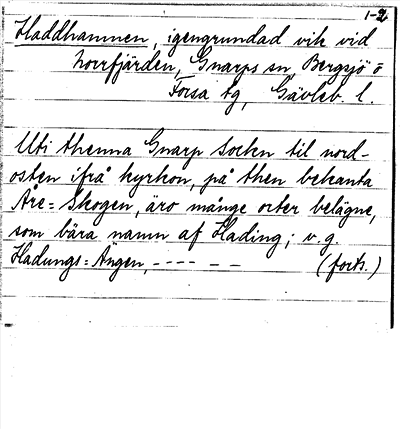 1-2
Haddhamnen, igengrundad vik vid
Norrfjärden, Gnarps sn, Bergsjö o
Forsa tg, Gävleb. l.
Uti thenna Gnarp Sockn til nord-
osten ifrå kyrkon, på then bekanta
Åre=Skogen, äro månge orter belägne,
som bära namn af Hading; v.g.
Hadungs=Ängen, ---- – –  (forts.)